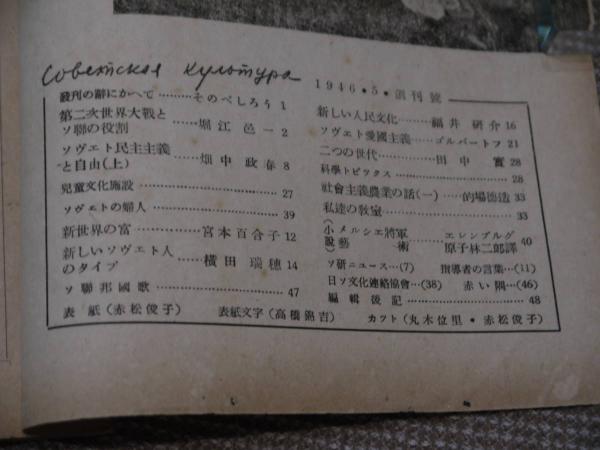 Советская культура
1946・5・創刊號
發刊の辭にかへて………そのべしろう 1
第二次世界大戰と
ソ聯の役割………堀江邑一 2
ソヴエト民主主義
と自由(上)………畑中政春 8
兒童文化施設………27
ソヴエトの婦人………39
新世界の富………宮本百合子 12
新しいソヴエト人
のタイプ………横田瑞穗 14
ソ聯邦國歌………47
新しい人民文化………福井研介 16
ソヴエト愛國主義………ゴルバートフ 21
二つの世代………田中實 28
科學トピツクス………28
社會主義農業の話(一)………的場德造 33
私達の教室………33
(小説)メルシエ將軍 エレンブルグ
藝術 原子林二郎譯 40
ソ研ニユース…(7) 指導者の言葉…(11)
日ソ文化連絡協會…(38) 赤い隅…(46)
編輯後記………48
表紙(赤松俊子) 表紙文字(高橋錦吉) カツト(丸木位里・赤松俊子)